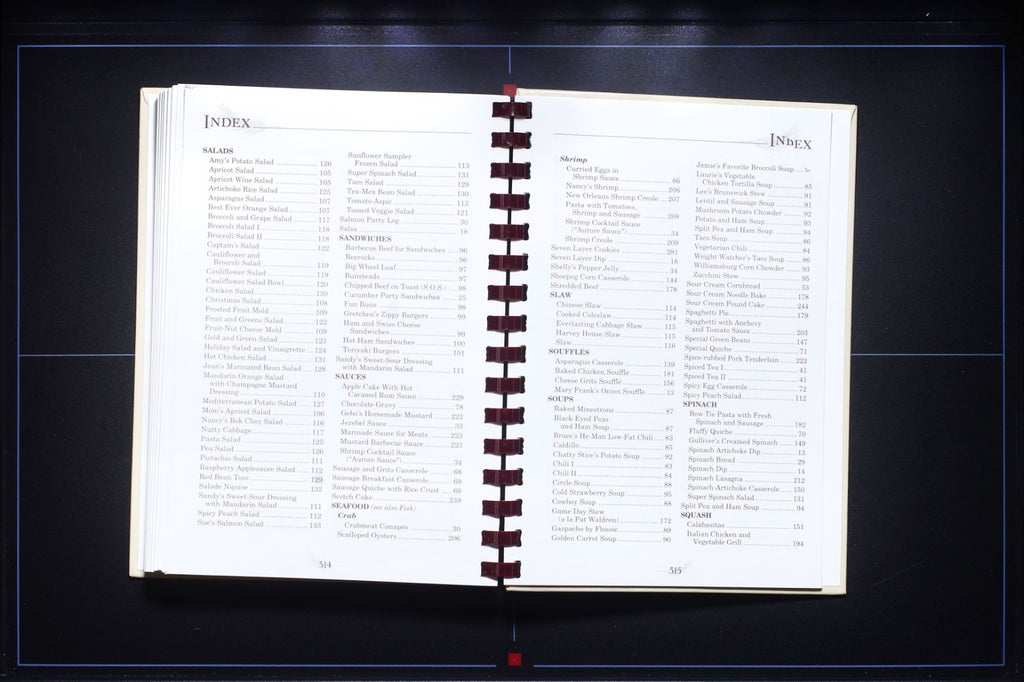 INDEX
SALADS
Amy's Potato Salad 126
Apricot Salad 105
Apricot Wine Salad 105
Artichoke Rice Salad 125
Asparagus Salad 107
Best Ever Orange Salad 107
Broccoli and Grape Salad 117
Broccoli Salad I 118
Broccoli Salad II 118
Captain's Salad 122
Cauliflower and
Broccoli Salad 119
Cauliflower Salad 119
Cauliflower Salad Bowl 120
Chicken Salad 130
Christmas Salad 108
Frosted Fruit Mold 109
Fruit and Greens Salad 122
Fruit-Nut Cheese Mold 109
Gold and Green Salad 123
Holiday Salad and Vinaigrette 124
Hot Chicken Salad 131
Jean's Marinated Bean Salad 128
Mandarin Orange Salad
with Champagne Mustard
Dressing 110
Mediterranean Potato Salad 127
Mom's Apricot Salad 106
Nancy's Bok Choy Salad 116
Nutty Cabbage 117
Pasta Salad 125
Pea Salad 126
Pistachio Salad 111
Raspberry Applesauce Salad 112
Red Bean Toss 129
Salade Niçoise 132
Sandy's Sweet-Sour Dressing
with Mandarin Salad 111
Spicy Peach Salad 112
Sue's Salmon Salad 133
Sunflower Sampler
Frozen Salad 113
Super Spinach Salad 131
Taco Salad 129
Tex-Mex Bean Salad 130
Tomato Aspic 113
Tossed Veggie Salad 121
Salmon Party Log 30
Salsa 18
SANDWICHES
Barbecue Beef for Sandwiches 96
Beerocks 96
Big Wheel Loaf 97
Bunsteads 97
Chipped Beef on Toast (S.O.S.) 98
Cucumber Party Sandwiches 25
Fun Buns 98
Gretchen's Zippy Burgers 99
Ham and Swiss Cheese
Sandwiches 99
Hot Ham Sandwiches 100
Teriyaki Burgers 101
Sandy's Sweet-Sour Dressing
with Mandarin Salad 111
SAUCES
Apple Cake With Hot
Caramel Rum Sauce 229
Chocolate Gravy 78
Gebo's Homemade Mustard 222
Jezebel Sauce 33
Marinade Sauce for Meats 223
Mustard Barbecue Sauce 223
Shrimp Cocktail Sauce
("Aurore Sauce") 34
Sausage and Grits Casserole 68
Sausage Breakfast Casserole 69
Sausage Quiche with Rice Crust 69
Scotch Cake 239
SEAFOOD (see also Fish)
Crab
Crabmeat Canapés 30
Scalloped Oysters 206
514
INDEX
Shrimp
Curried Eggs in
Shrimp Sauce 66
Nancy's Shrimp 206
New Orleans Shrimp Creole 207
Pasta with Tomatoes,
Shrimp and Sausage 208
Shrimp Cocktail Sauce
("Aurore Sauce") 34
Shrimp Creole 209
Seven Layer Cookies 281
Seven Layer Dip 18
Shelly's Pepper Jelly 34
Shoepeg Corn Casserole 144
Shredded Beef 178
SLAW
Chinese Slaw 114
Cooked Coleslaw 114
Everlasting Cabbage Slaw 115
Harvey House Slaw 115
Slaw 116
SOUFFLÉS
Asparagus Casserole 139
Baked Chicken Soufflé 181
Cheese Grits Soufflé 156
Mary Frank's Onion Soufflé 13
SOUPS
Baked Minestrone 87
Black-Eyed Peas
and Ham Soup 87
Bruce's He-Man Low-Fat Chili 83
Caldillo 85
Chatty Stice's Potato Soup 92
Chili I 83
Chili II 84
Circle Soup 88
Cold Strawberry Soup 95
Cowboy Soup 88
Game Day Stew
(a la Pat Waldren) 172
Gazpacho by Flossie 89
Golden Carrot Soup 90
Jamie's Favorite Broccoli Soup
Laurie's Vegetable
Chicken Tortilla Soup 85
Lee's Brunswick Stew 91
Lentil and Sausage Soup 91
Mushroom Potato Chowder 92
Potato and Ham Soup 93
Split Pea and Ham Soup 94
Taco Soup 86
Vegetarian Chili 84
Weight Watcher's Taco Soup 86
Williamsburg Corn Chowder 93
Zucchini Stew 95
Sour Cream Cornbread 53
Sour Cream Noodle Bake 178
Sour Cream Pound Cake 244
Spaghetti Pie 179
Spaghetti with Anchovy
and Tomato Sauce 203
Special Green Beans 147
Special Quiche 71
Spice-rubbed Pork Tenderloin 222
Spiced Tea I 41
Spiced Tea II 41
Spicy Egg Casserole 72
Spicy Peach Salad 112
SPINACH
Bow Tie Pasta with Fresh
Spinach and Sausage 182
Fluffy Quiche 70
Gulliver's Creamed Spinach 149
Spinach Artichoke Dip 13
Spinach Bread 29
Spinach Dip 14
Spinach Lasagna 212
Spinach-Artichoke Casserole 150
Super Spinach Salad 131
Split Pea and Ham Soup 94
SQUASH
Calabasitas 151
Italian Chicken and
Vegetable Grill 194
515